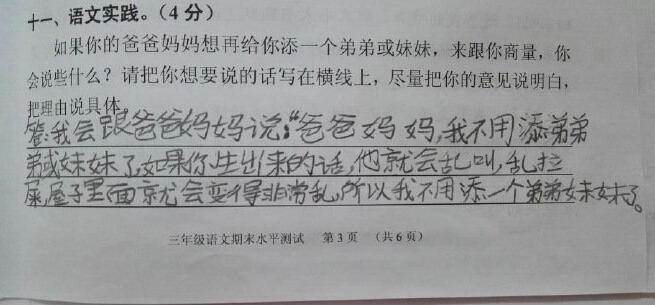 十一、语文实践。（4分）
如果你的爸爸妈妈想再给你添一个弟弟或妹妹，来跟你商量，你
会说些什么？请把你想要说的话写在横线上，尽量把你的意见说明白，
把理由说具体。
答：我会跟爸爸妈妈说：“爸爸妈妈，我不用添弟弟
弟或妹妹了，如果你生出来的话，他就会乱叫，乱拉
屎，屋子里面就会变得非常乱，所以我不用添一个弟弟妹妹了。
三年级语文期末水平测试 第3页 （共6页）